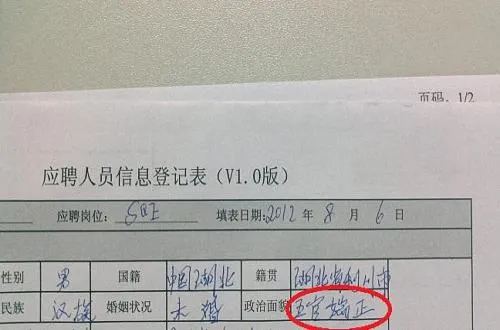 页码: 1/2
应聘人员信息登记表（V1.0版）
应聘岗位: SQE 填表日期:2012 年 8 月 6 日
性别 男 国籍 中国湖北 籍贯 湖北省利川市
民族 汉族 婚姻状况 未婚 政治面貌 五官端正